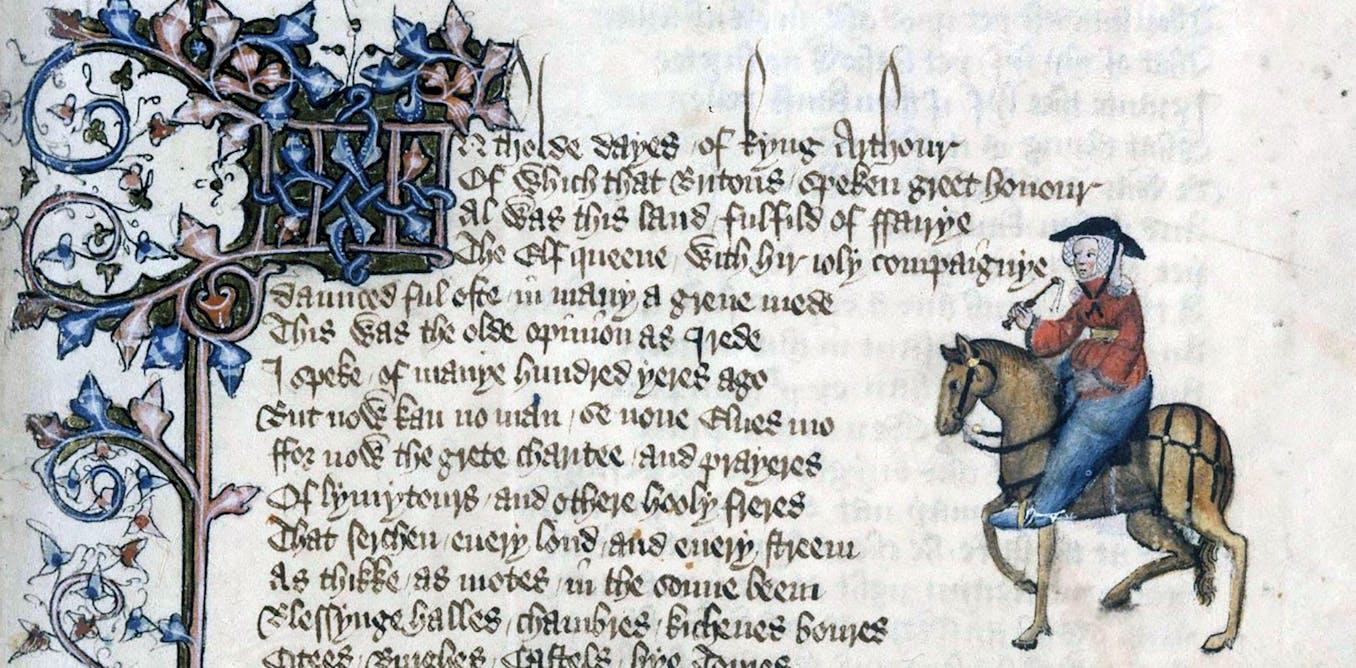 IN tholde dayes of kyng Arthour
Of which that Britons / speken greet honour
Al was this land / fulfild of ffairye
The Elf queene / with hir ioly compaignye
Daunced ful ofte / in many a grene mede
This was the olde opinion as I rede
I speke / of manye hundred yeres ago
But now kan no man / se none Elues mo
ffor now the grete charitee / and prayeres
Of lymytours / and othere hooly freres
That serchen / euery lond / and euery streem
As thikke / as motes / in the sonne beem
Blessynge halles / chambres / kichenes boures
Citees / Burghes / Castels / hye Toures